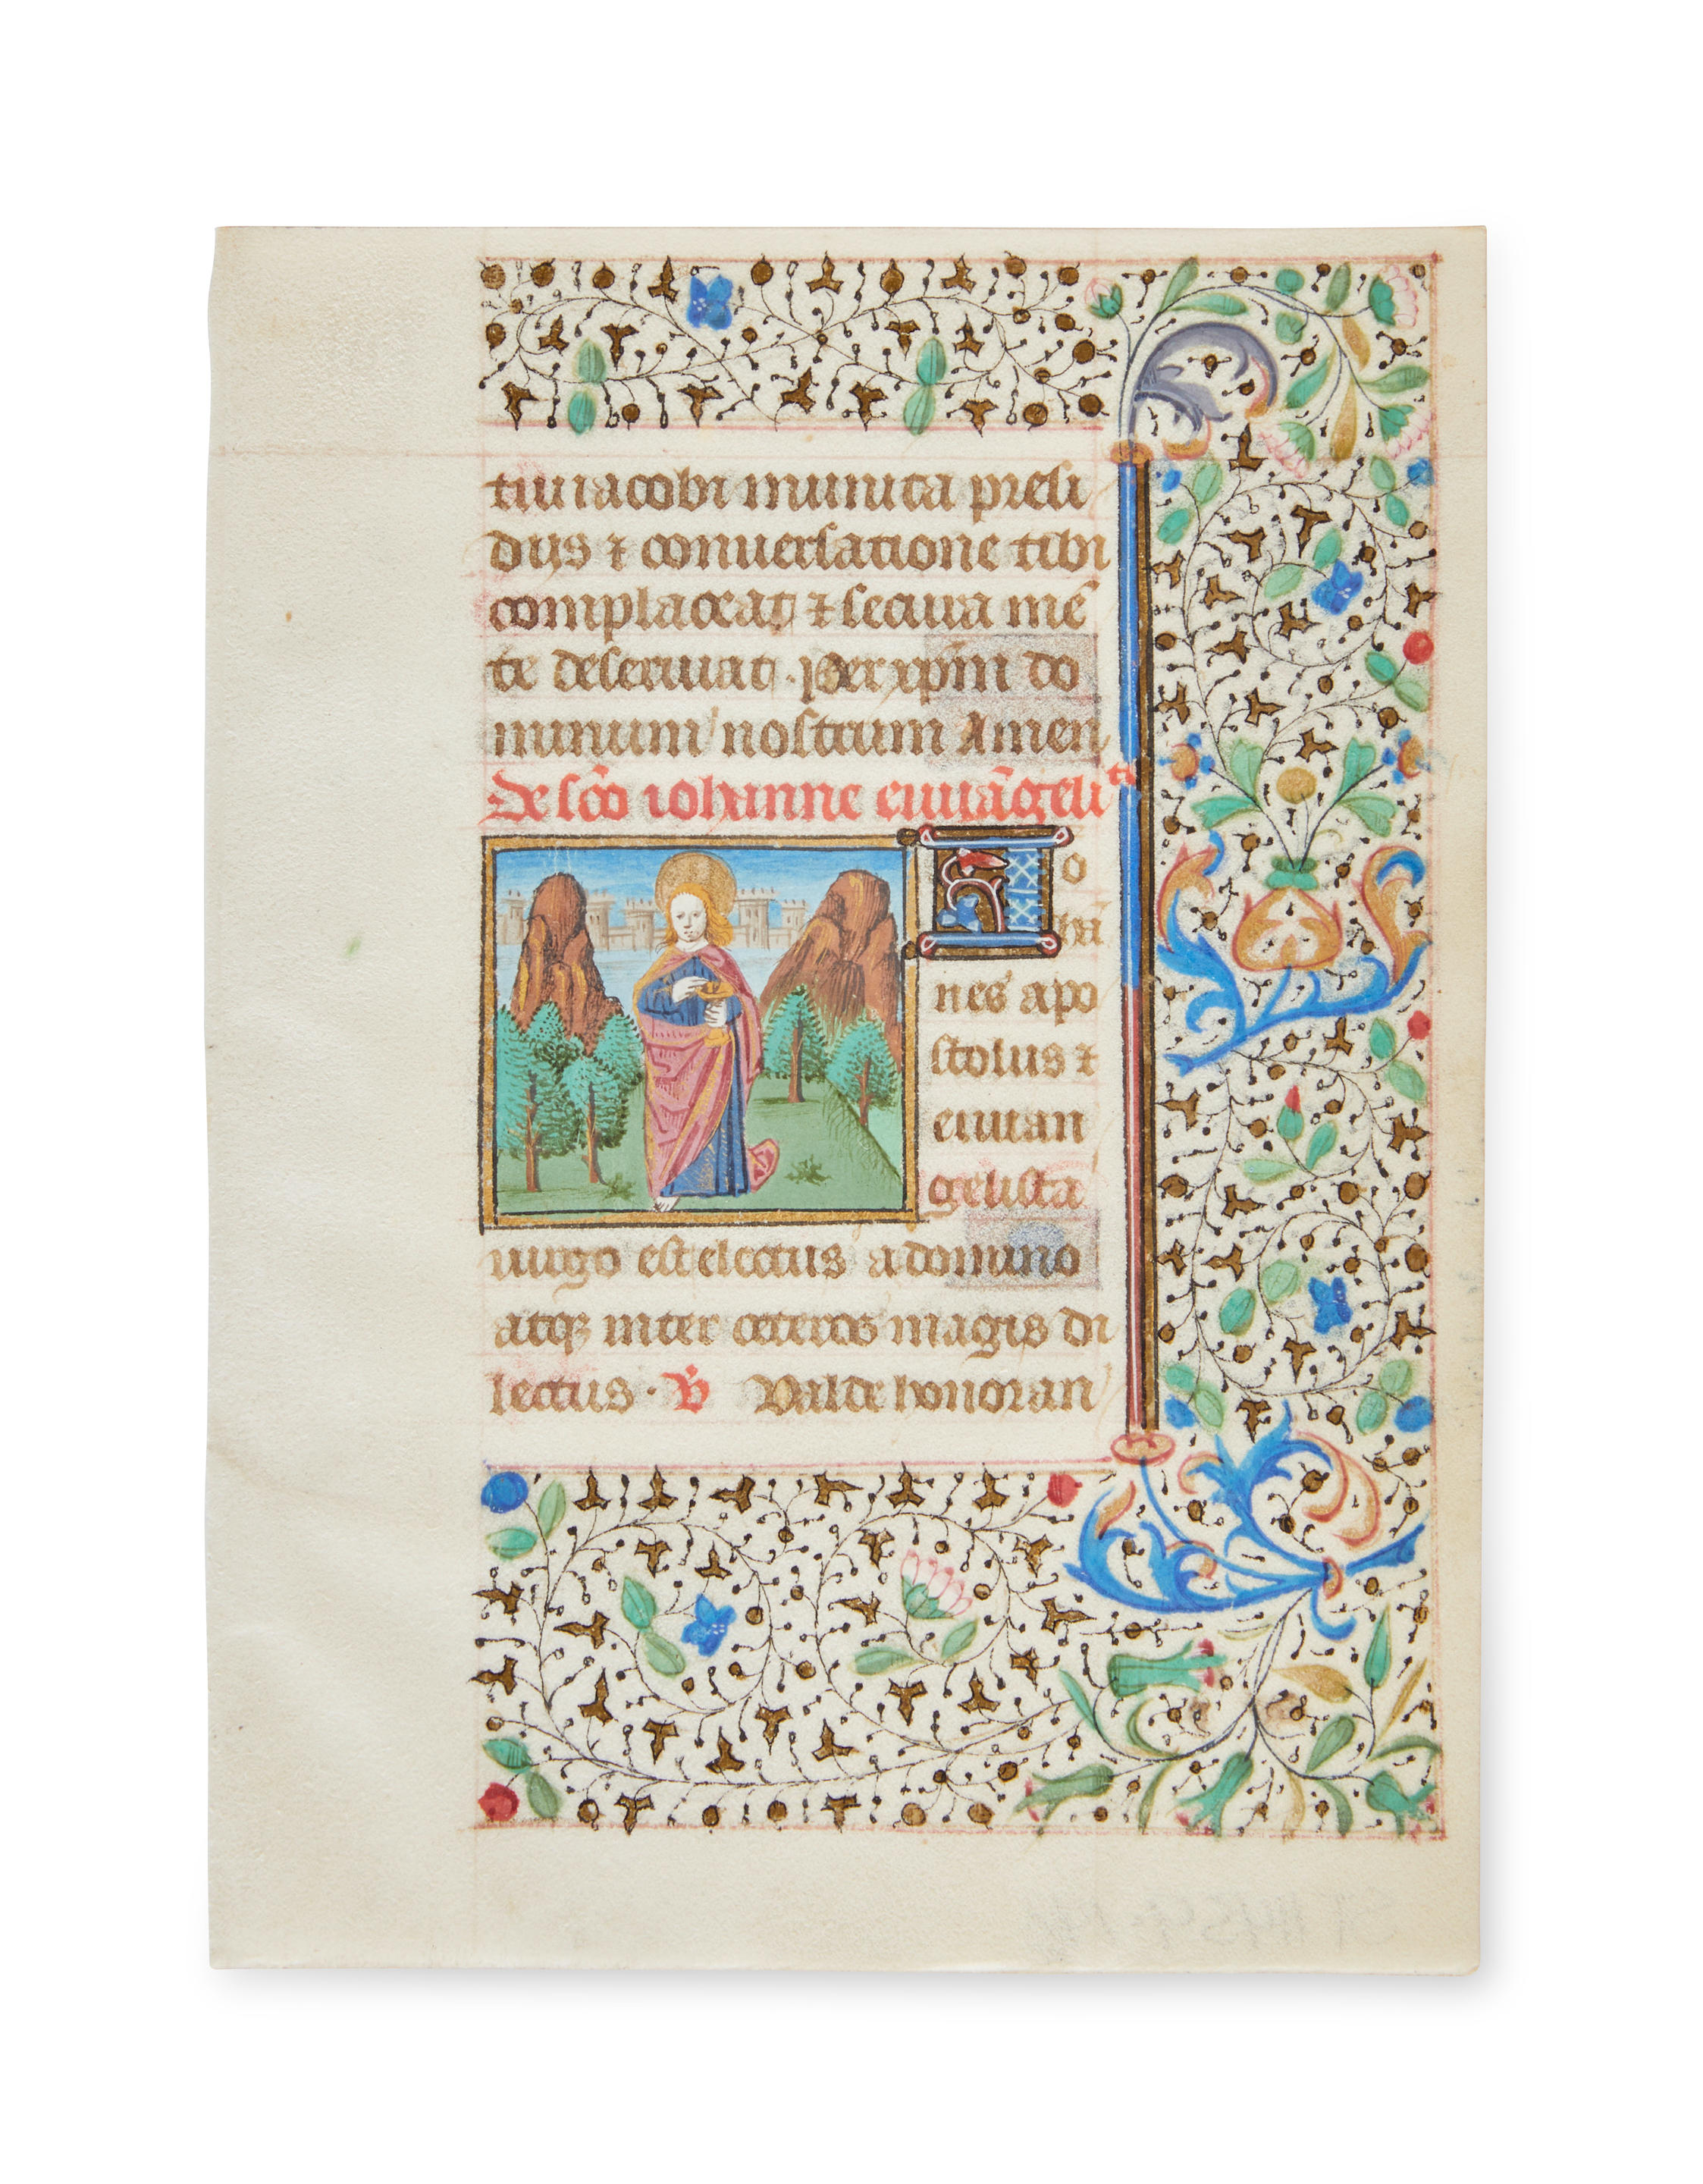 tui iacobi munita presi
diis ⁊ conuersatione tibi
complaceat ⁊ secura me͂
te deseruiat. Per xp̄m do
minum nostrum Amen
De sc̄o iohanne euua͂gelista
Io
ha͂
nes apo
stolus ⁊
euuan
gelista
uirgo est electus a domino
atqꝫ inter ceteros magis di
lectus. ℣ Valde honoran